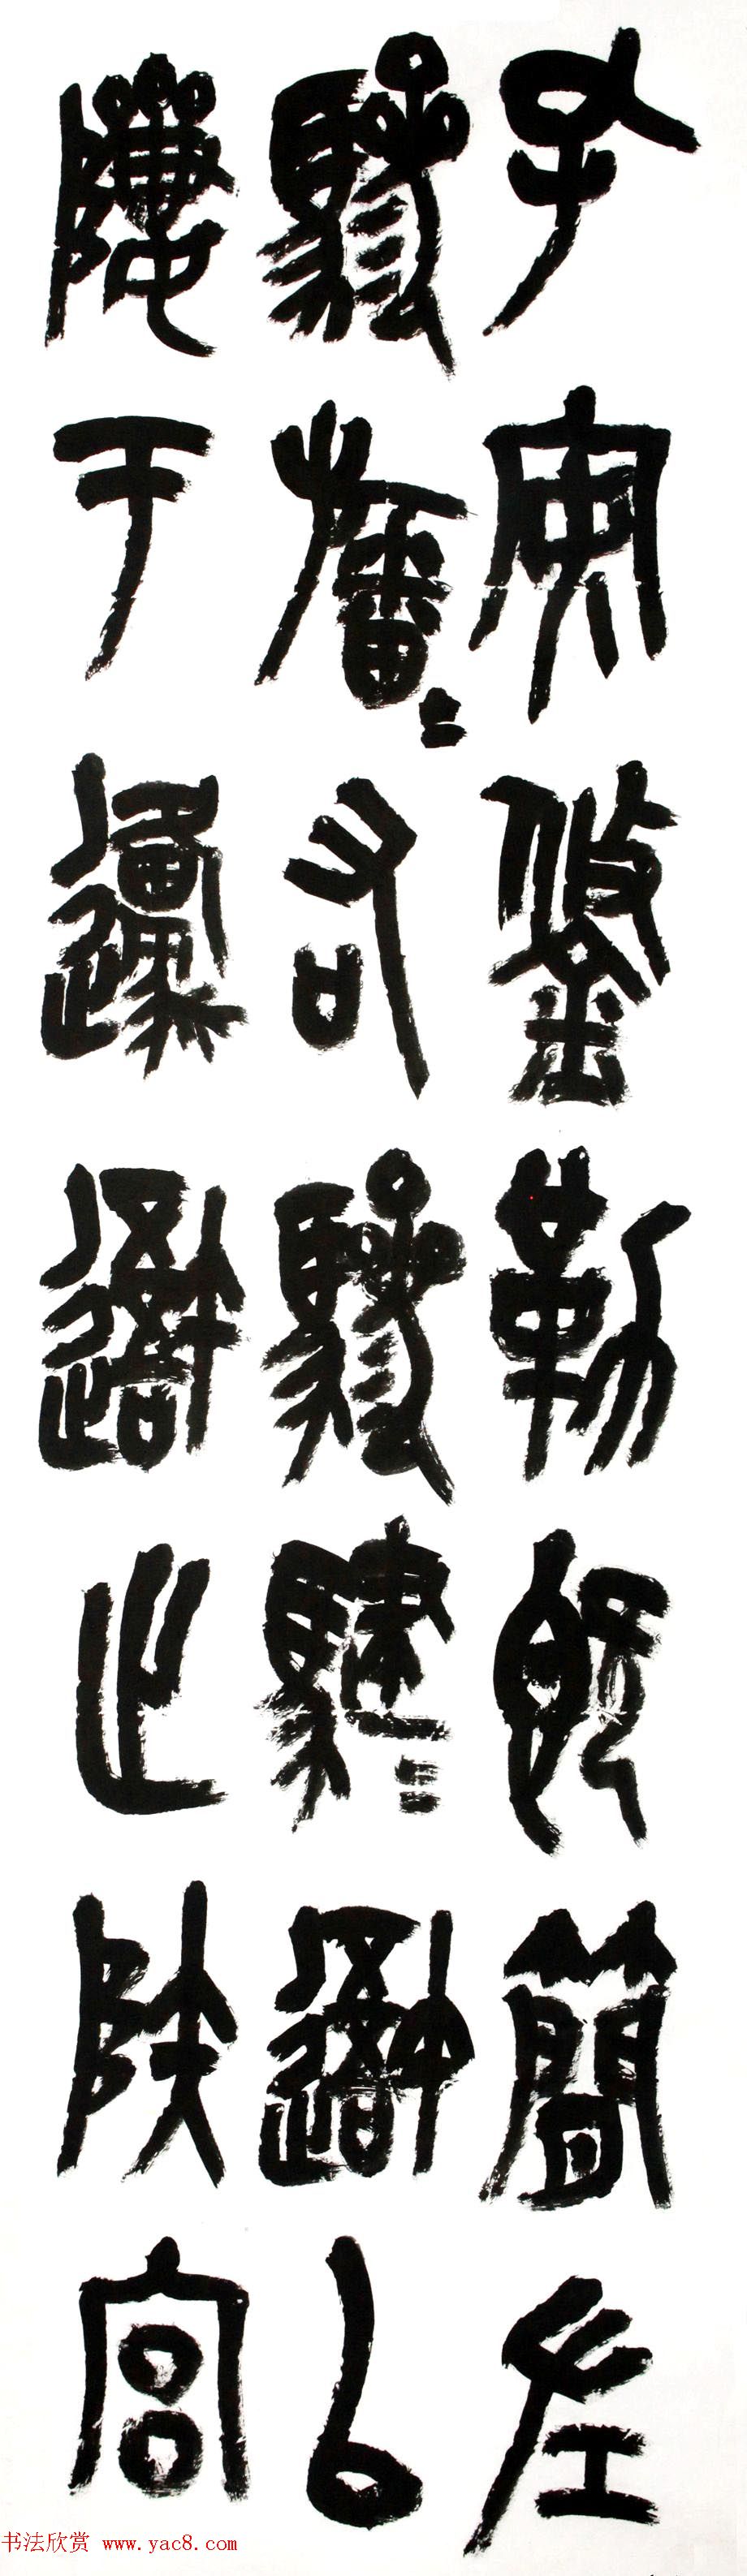 孔安鋚勒既簡左
驂旛〻右驂騝〻吾以
隮于邍吾止陕宮
书法欣赏 www.yac8.com